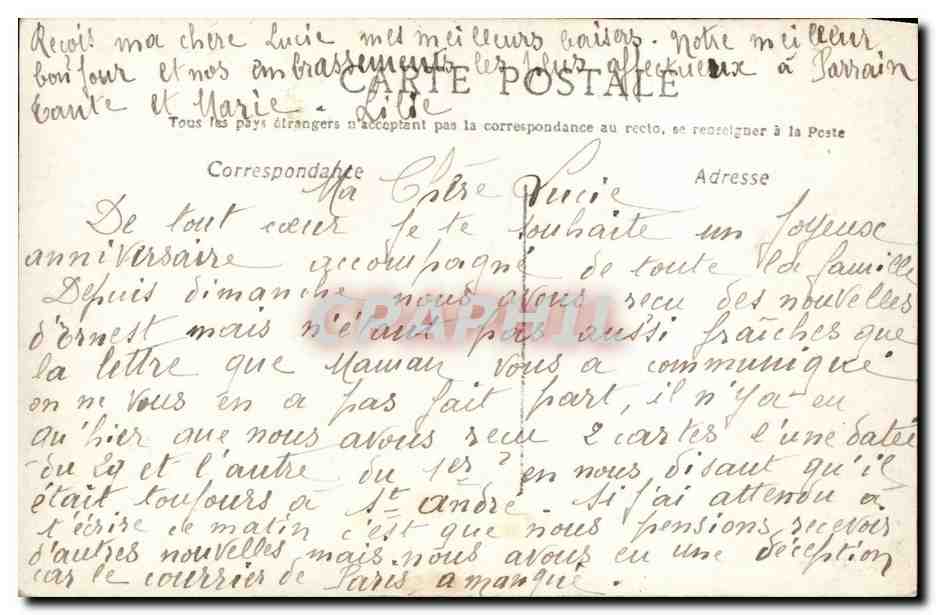 Reçois ma chère Lucie mes meilleurs baisers. Notre meilleur
bonjour et nos embrassements les plus affectueux à Parrain
Tante et Marie. Lilie
CARTE POSTALE
Tous les pays étrangers n'acceptant pas la correspondance au recto, se renseigner à la Poste
Correspondance
Adresse
Ma Chère Lucie
De tout cœur je te souhaite un joyeux
anniversaire accompagné de toute la famille
Depuis dimanche nous avons recu des nouvelles
d'Ernest mais n'étant pas aussi fraîches que
la lettre que Maman vous a communiqué
on ne vous en a pas fait part, il n'y a eu
qu'hier que nous avons recu 2 cartes l'une datée
du 29 et l'autre du 1er en nous disant qu'il
était toujours à St André. Si j'ai attendu à
t'écrire ce matin c'est que nous pensions recevoir
d'autres nouvelles mais nous avons eu une déception
car le courrier de Paris a manqué.
CPAPHIL